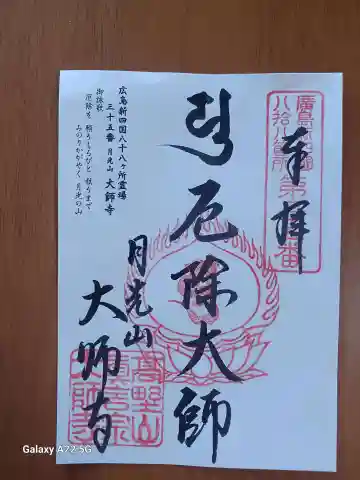 奉拝
廣島新四国
八拾八ヶ所第
番
厄除大師
月光山
大師寺
広島新四国八十八ヶ所霊場
三十五番 月光山 大師寺
御詠歌
厄除を 頼りしろびと 救うまで
みのりかがやく 月光の山
高野山
真言宗
大師寺
Galaxy A22 5G